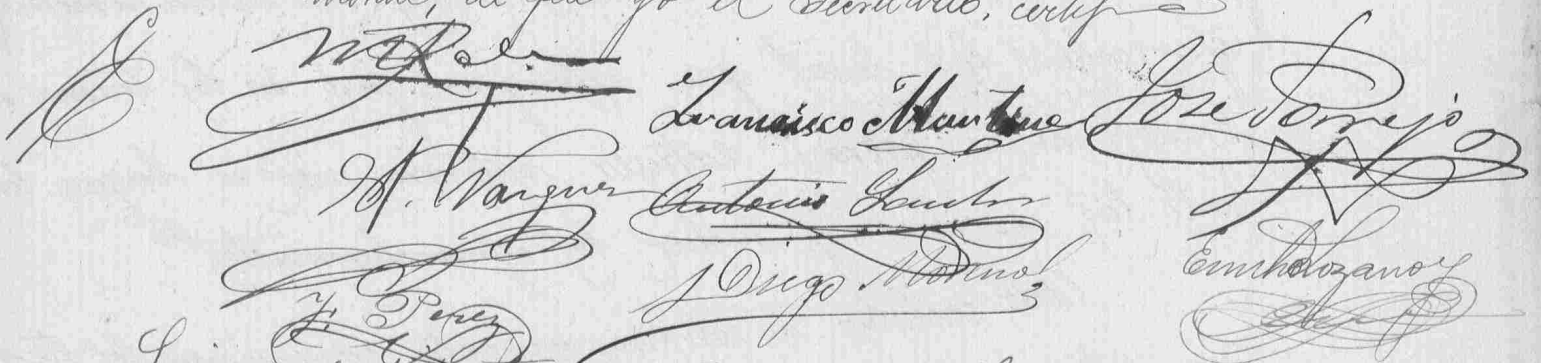 de que yo el Secretario, certifico
Francisco Martine
José Torrejo
A. Vazquez
Antonio Santos
Diego Moreno
Emilio Lozano
F. Perez